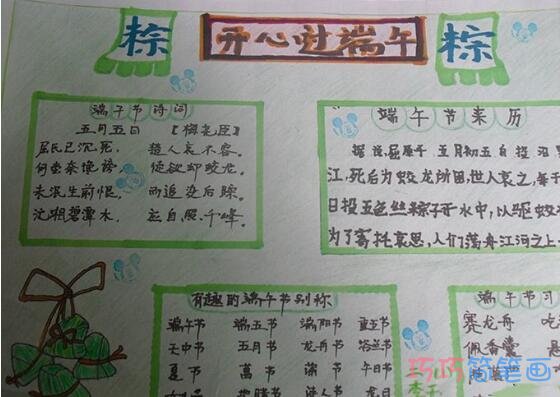 粽 开心过端午 粽
端午节诗词
五月五日 【梅尧臣】
屈氏已沉死， 楚人哀不容。
何尝奈谗谤， 徒欲却蛟龙。
未泯生前恨， 而追没后踪。
沅湘碧潭水， 应自照千峰。
端午节来历
据说，屈原于五月初五自投汨
江，死后为蛟龙所困，世人哀之，每于
日投五色丝粽子于水中，以驱蛟
为了寄托哀思，人们荡舟江河之上
有趣的端午节别称
端午节 端五节 端阳节 重五节
天中节 五月节 龙舟节 浴兰节
夏节 菖节 蒲节 午日节
诗人节 龙日
李子
端午节习
赛龙舟 吃
佩香囊 悬
巧巧简笔画